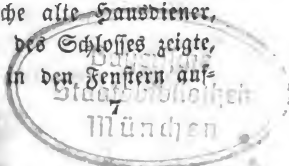 che alte Hausdiener,
des Schlosses zeigte,
in den Fenstern auf-
Staatsbibliothek
7
München